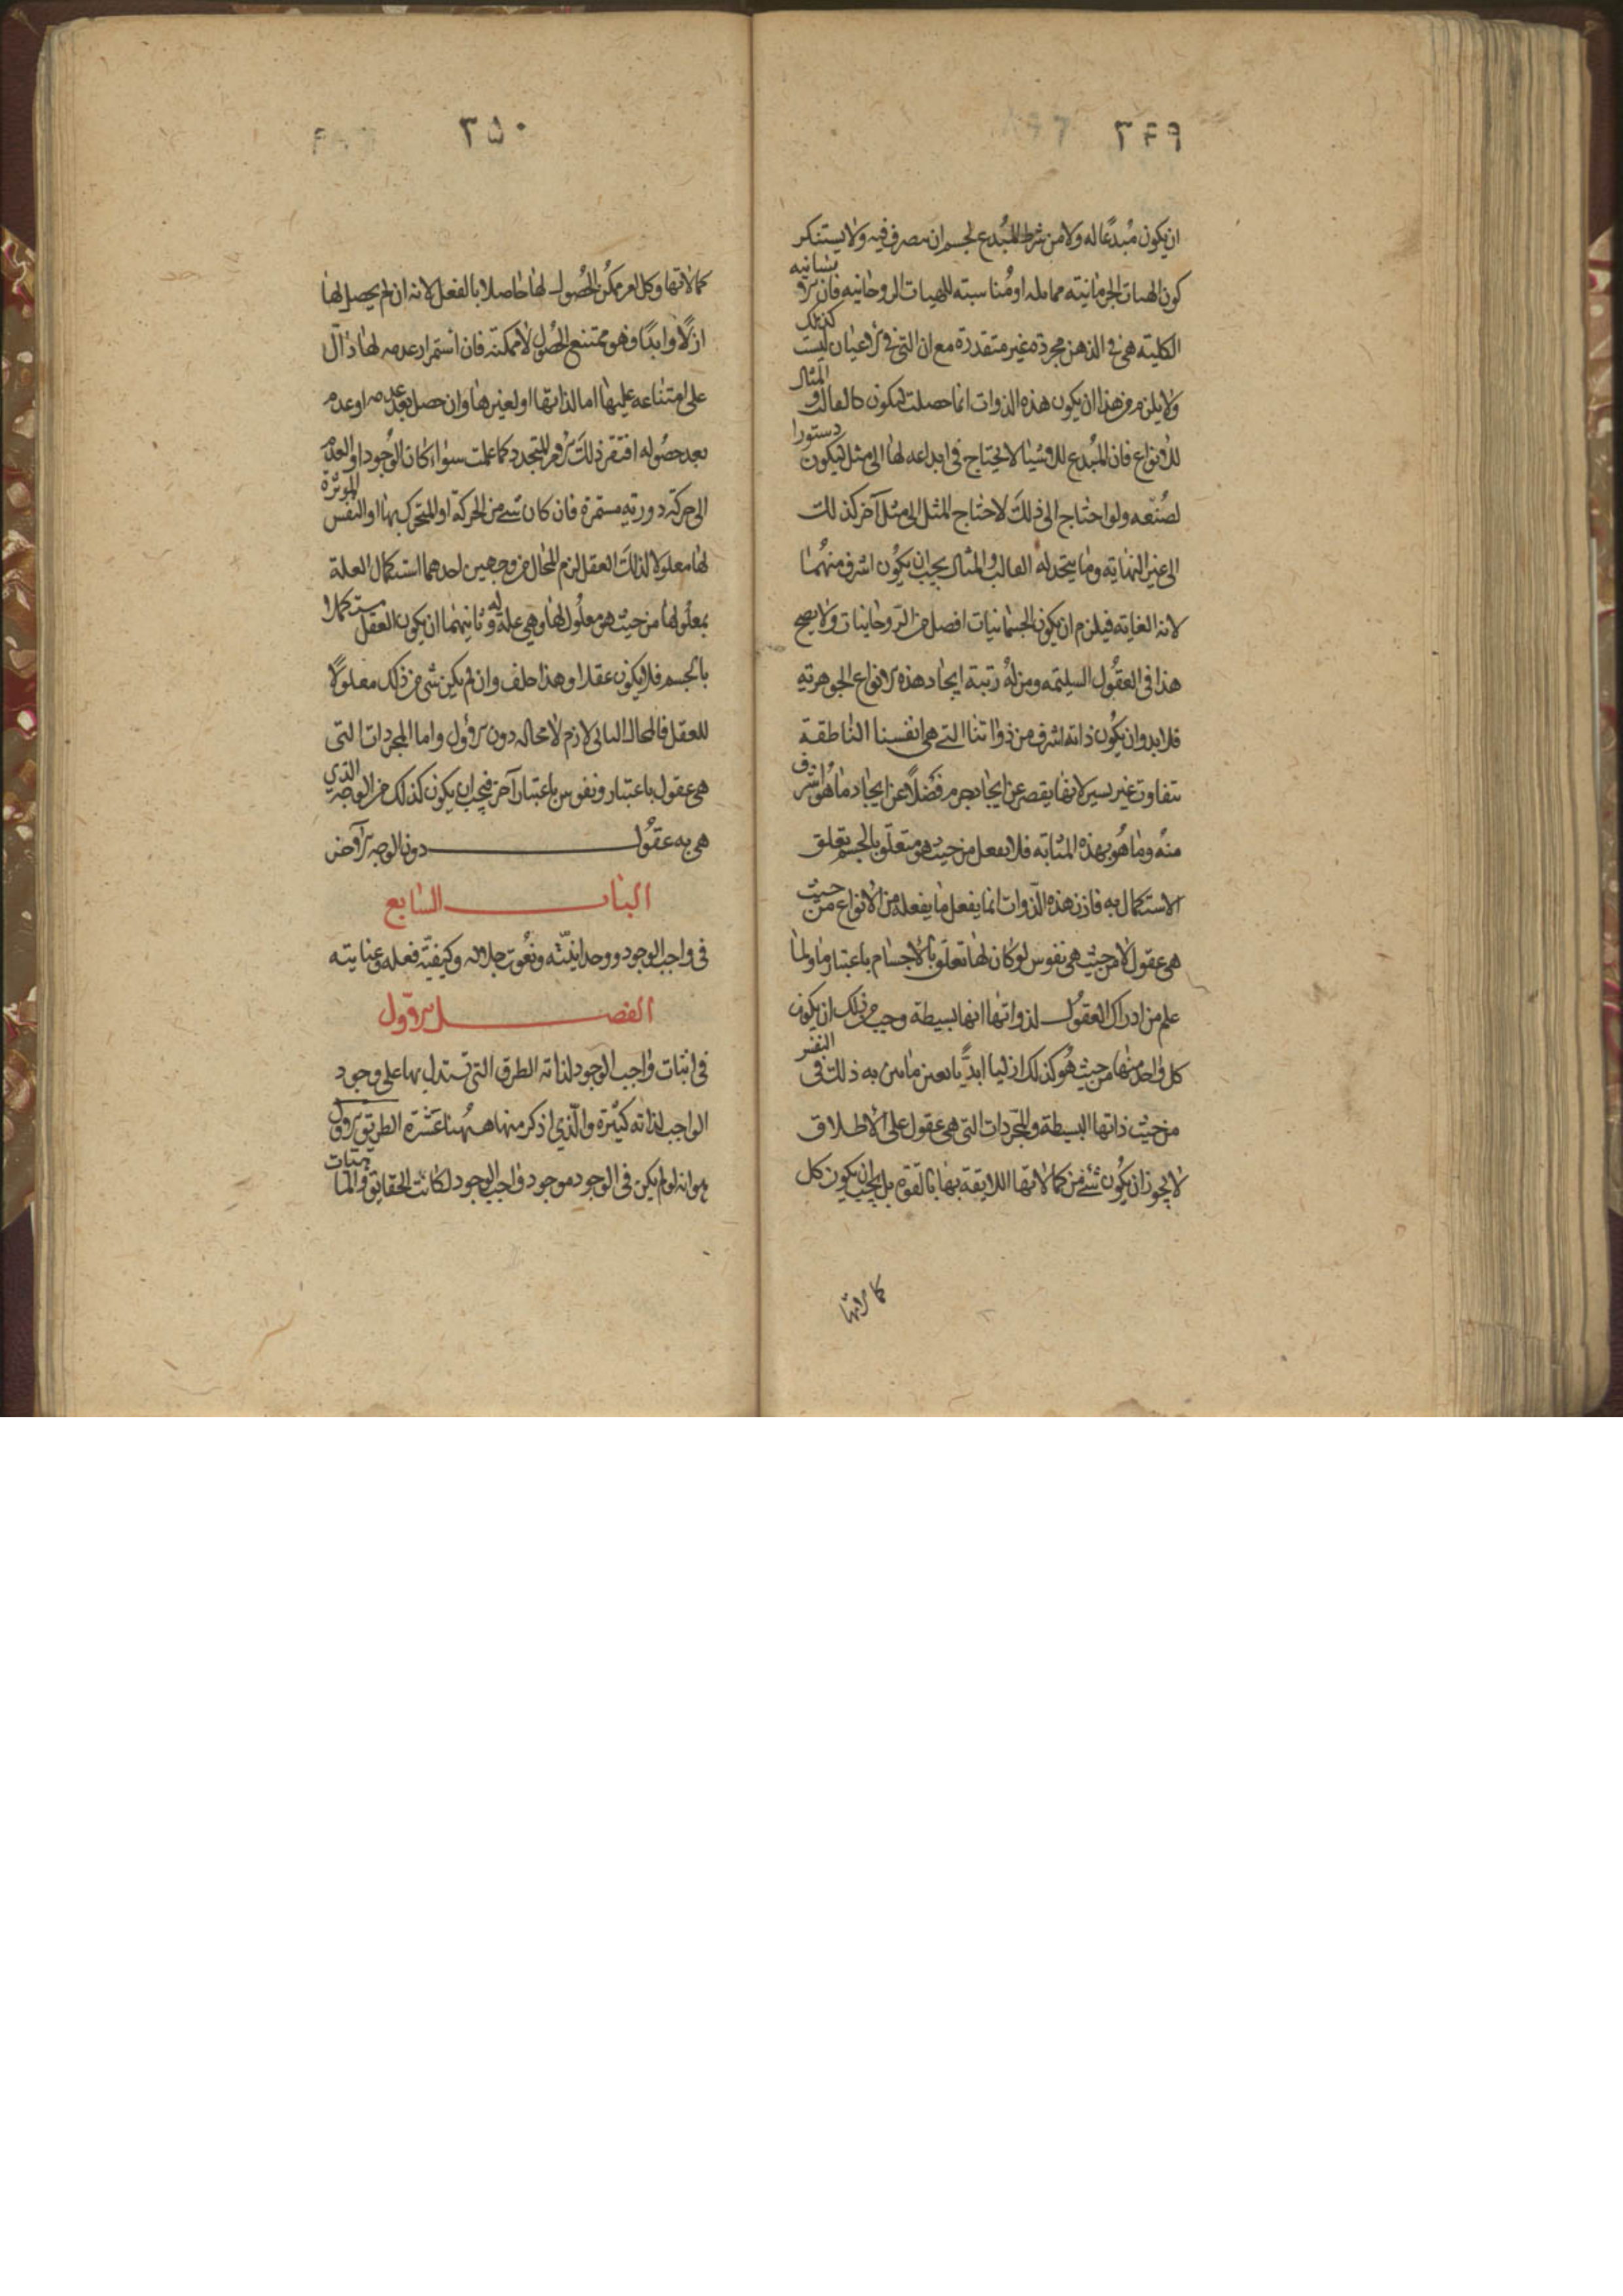 ٣٤٩
ان يكون مُبدعًا له ولا من شرط المُبدع لجسم ان يتصرف فيه ولا يستنكر
كون الهيات الجرمانية مماثله او مُناسبته للهيات الروحانيه فان الانسانيه
الكلية هى فى الذهن مجردة غير متقدرة مع ان التى فى الاعيان ليست كذلك
ولا يلزم من هذا ان يكون هذه الذوات انما حصلت ليكون كالقالب و المثال
للانواع فان المُبدع للاشيا لا يحتاج فى ابداعه لها الى مثل ليكون دستورا
لصُنعه ولو احتاج الى ذلك لاحتاج المثل الى مثل آخر كذلك
الى غير النهاية وما يتخذ له القالب والمثال يجب ان يكون اشرف منهُما
لانه الغاية فيلزم ان يكون الجسمانيات افضل من الروحانيات ولا يصح
هذا فى العقُول السليمه ومن له رتبة ايجاد هذه الانواع الجوهرية
فلا بد وان يكُون ذاته اشرف من ذواتنا التى هى انفسنا الناطقة
بتفاوت غير يسير لانها يقصر عن ايجاد جرم فَضلًا عن ايجاد ما هُو اشرف
منهُ وما هُو بهذه المثابه فلا يفعل من حيث هو متعلق بالجسم تعلق
الاستكمال به فاذن هذه الذوات انما يفعل ما يفعله من الانواع من حيث
هى عقول لا من حيث هى نفوس لو كان لها تعلق بالاجسام باعتبار ما ولما
علم من ادراك العقُول لذواتها انها بسيطة وجب من ذلك ان يكون
كل واحد منها من حيث هُو كذلك ازليا ابديًا بعين ما بين به ذلك فى النفس
من حيث ذاتها البسيطة والمجردات التى هى عقول على الاطلاق
لا يجوز ان يكُون شئ من كمالاتها اللايقة بها بالقوة بل يجب ان يكون كل
كمالاتها
٣٥٠
كمالاتها وكل امر ممكن الحُصول لها حاصلا بالفعل لانه ان لم يحصل لها
ازلًا وابدًا فهو ممتنع الحصُول لا ممكنه فان استمرار عدمه لها دال
على امتناعه عليها اما لذاتها او لغيرها وان حصل بعد عدمه او عدم
بعد حصُوله افتقر ذلك الامر المتجدد كما علمت سواء كان الوُجود او العدم
الى حركة دورية مستمرة فان كان شئ من الحركة او المتحرك بها او النفس الموثرة
لها معلولا لذلك العقل لزم المحال من وجهين احدهما استكمال العلة
بمعلُولها من حيث هو معلُول لها وهى علة له وثانيهما ان يكون العقل مستكملا
بالجسم فلا يكون عقلا وهذا خلف وان لم يكن شئ من ذلك معلولًا
للعقل فالمحال الثانى لازم لا محاله دون الاول واما المجردات التى
هى عقول باعتبار ونفوس باعتبار آخر فيجب ان يكون كذلك من الوجه الذي
هى به عقُول دون الوجه الآخر
الباب السابع
فى واجب الوجود ووحدانيته ونعُوت جلاله وكيفية فعله وعنايته
الفصل الاول
فى اثبات واجب الوجود لذاته الطرق التى تستدل بها على وجود
الواجب لذاته كثيرة والذي اذكر منها ههُنا عشرة الطريق الاول
هو انه لو لم يكن فى الوجود موجود واجب الوجود لكانت الحقايق والماهيات